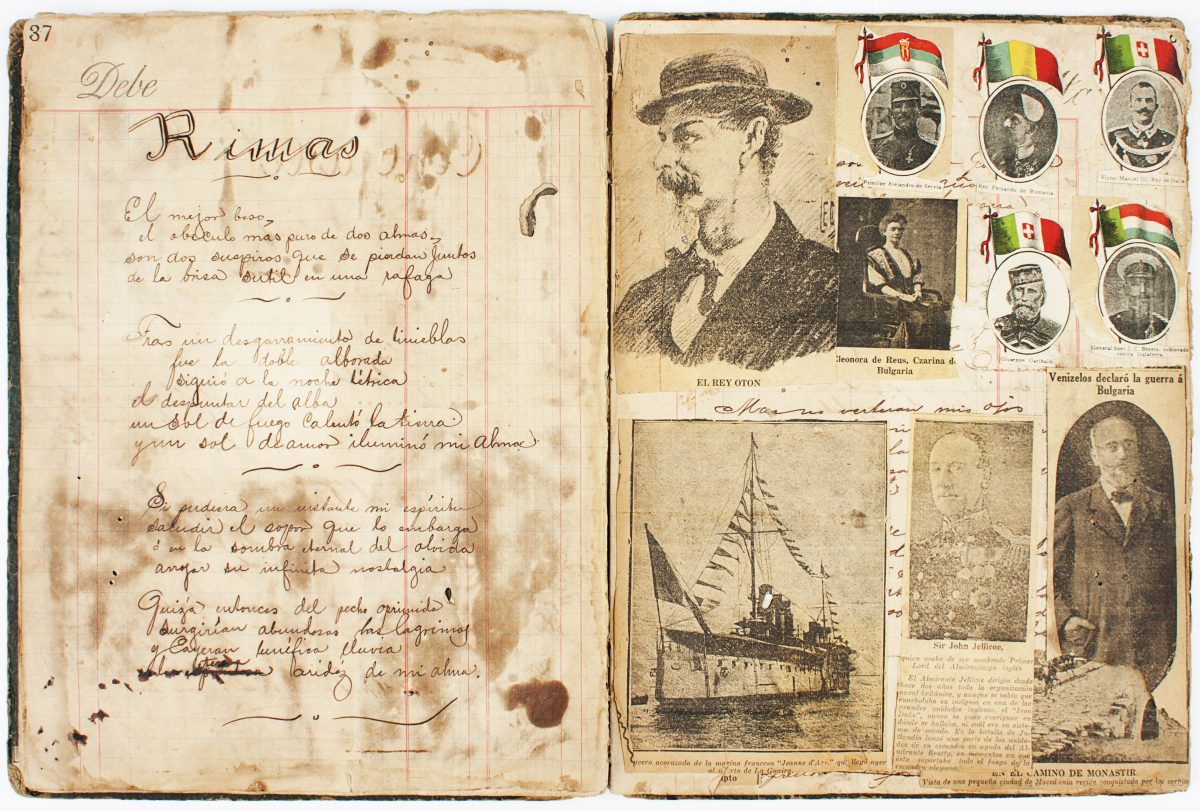 37
Debe
Rimas
El mejor beso,
el obsculo más puro de dos almas,
son dos suspiros que se pierdan juntos
de la brisa sutil en una rafaga
Tras un desgarramiento de tinieblas
fue la doble alborada
siguió a la noche tétrica
el despuntar del alba
un sol de fuego calentó la tierra
y un sol de amor iluminó mi alma.
Si pudiera un instante mi espíritu
sacudir el sopor que lo embarga
ó en la sombra eternal del olvido
arrojar su infinita nostalgia
Quizá entonces del pecho oprimido
surgirían abundosas las lagrimas
y cayeran benéfica lluvia
aridéz de mi alma.
EL REY OTON
Príncipe Alejandro de Servia.
Rey Fernando de Rumania.
Víctor Manuel III, Rey de Italia.
Eleonora de Reus, Czarina de
Bulgaria
Giuseppe Garibaldi
General boer J. C. Beyers, sublevado
contra Inglaterra.
Mas no verteran mis ojos
Venizelos declaró la guerra á
Bulgaria
Sir John Jellicoe,
quien acaba de ser nombrado Primer
Lord del Almirantazgo inglés
El Almirante Jellicoe dirigió desde
hace dos años toda la organización
naval británica, y aunque se sabía que
enarbolaba su insignia en una de las
grandes unidades inglesas, el "Iron
Duke", nunca se pudo averiguar en
dónde se hallaba, ni cuál era su sistema
de mando. En la batalla de Jutlandia
lanzó una parte de las unidades
de su escuadra en ayuda del Almirante
Beatty, en momentos en que
ésta soportaba todo el fuego de la
escuadra alemana.
crucero acorazado de la marina francesa "Jeanne d'Arc" que llegó ayer
al puerto de La Guaira
EN EL CAMINO DE MONASTIR
Vista de una pequeña ciudad de Macedonia recién conquistada por los serbios